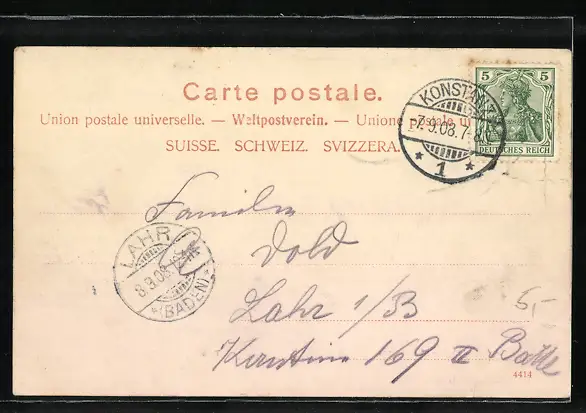 Carte postale.
Union postale universelle. — Weltpostverein. — Unione postale u
SUISSE. SCHWEIZ. SVIZZERA.
KONSTANZ
7.9.08.7-8
* 1 *
5 5
DEUTSCHES REICH
Familie
Dold
LAHR
8.9.08.
*(BADEN)*
Lahr 1/B
5,-
Kantine 169 II Batll
4414